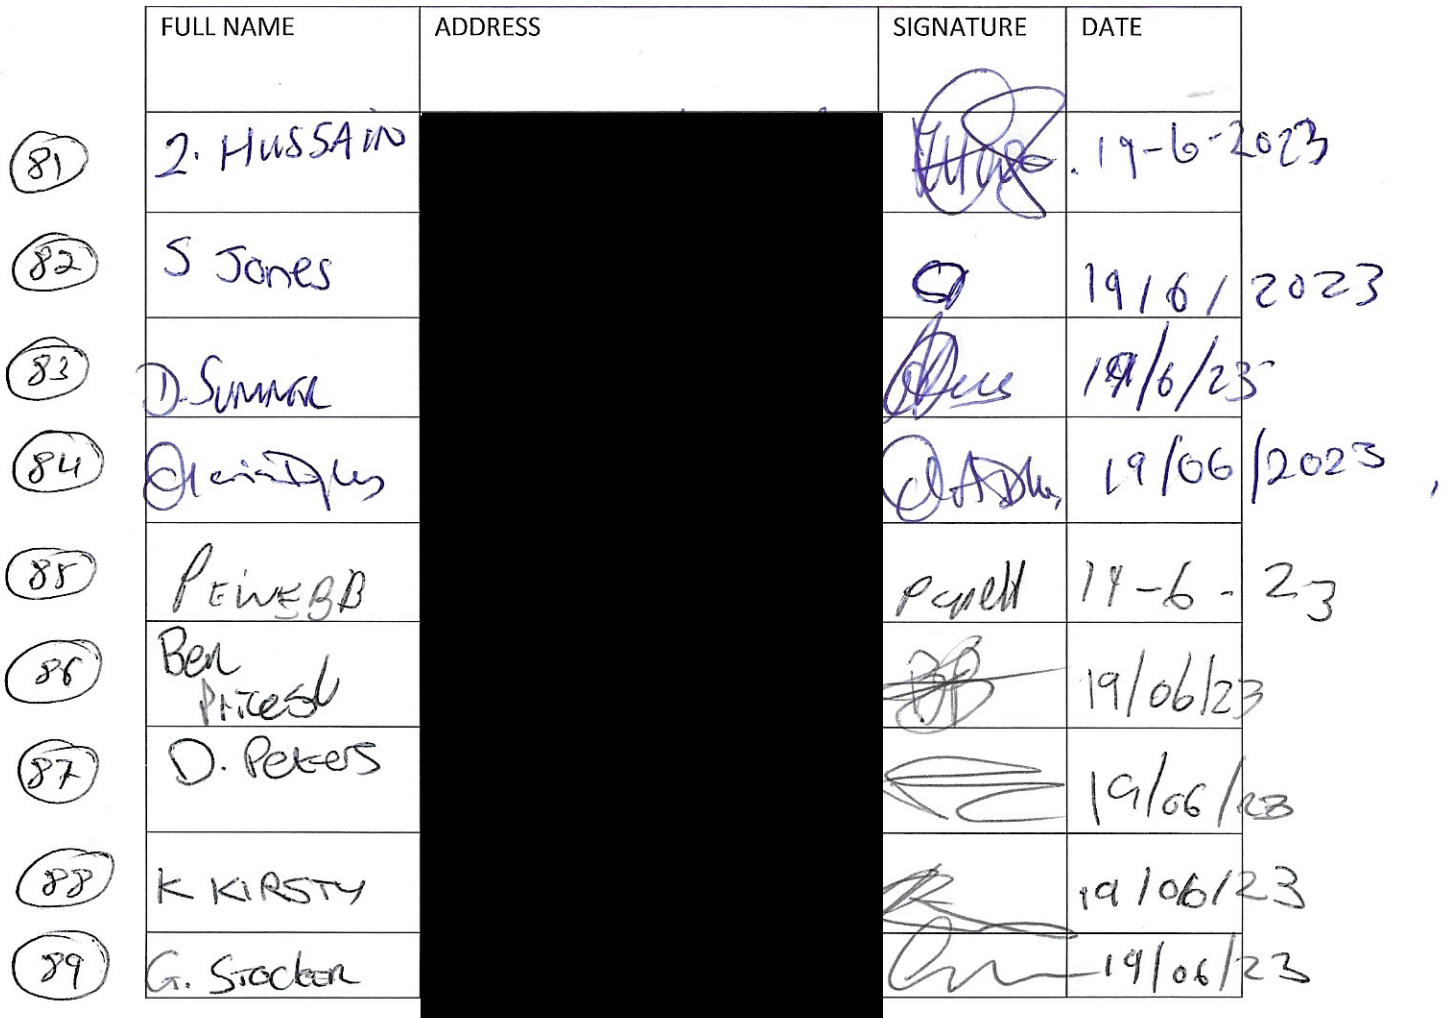 FULL NAME ADDRESS SIGNATURE DATE
81 Z. HUSSAIN 19-6-2023
82 S Jones 19/6/2023
83 D. SUMMER 19/6/23
84 19/06/2023
85 P E WEBB 19-6-23
86 Ben 19/06/23
87 D. Peters 19/06/23
88 K KIRSTY 19/06/23
89 G. Stocker 19/06/23